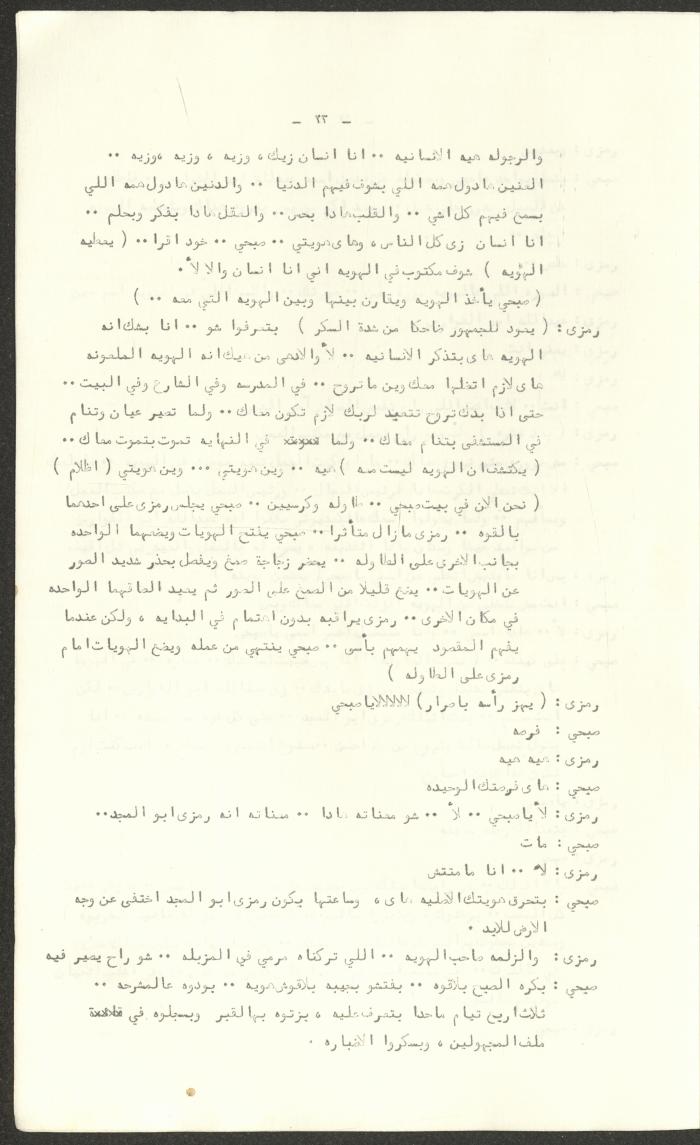 ـ ٢٣ ـ
والرجوله هيه الانسانيه ٠٠ انا انسان زيك ، وزيه ، وزيه ،وزيه ٠٠
العنين هادول همه اللي بشوف فيهم الدنيا ٠٠ والدنين هادول همه اللي
بسمع فيهم كل اشي ٠٠ والقلب هادا بحس ٠٠ والعقل هادا بفكر وبحلم ٠٠
انا انسان زى كل الناس ، وهاى هويتي ٠٠ صبحي ٠٠ خود اقرا ٠٠ ( يعطيه
الهويه ) شوف مكتوب في الهويه اني انا انسان والا لأ ٠
( صبحي يأخذ الهويه ويقارن بينها وبين الهويه التي معه ٠٠ )
رمزى : ( يعود للجمهور ضاحكا من شدة السكر ) بتعرفوا شو ٠٠ انا بشك انه
الهويه هاى بتذكر الانسانيه ٠٠ لأ والانعى من هيك انه الهويه الملعونه
هاى لازم اتظلها معك وين ما تروح ٠٠ في المدرسه وفي الشارع وفي البيت ٠٠
حتى اذا بدك تروح تتعبد لربك لازم تكون معاك ٠٠ ولما تصير عيان وتنام
في المستشفى بتنام معاك ٠٠ ولما في النهايه تموت بتموت معاك ٠٠
( يكتشف ان الهويه ليست معه ) هيه ٠٠ وين هويتي ٠٠٠ وين هويتي ( اظلام )
( نحن الان في بيت صبحي ٠٠ طاوله وكرسيين ٠٠ صبحي يجلس رمزى على احدهما
بالقوه ٠٠ رمزى مازال متأثرا ٠٠ صبحي يفتح الهويات ويضعهما الواحده
بجانب الاخرى على الطاوله ٠٠ يحضر زجاجة صمغ ويفصل بحذر شديد الصور
عن الهويات ٠٠ يضع قليلا من الصمغ على الصور ثم يعيد الصاقهما الواحده
في مكان الاخرى ٠٠ رمزى يراقبه بدون اهتمام في البدايه ، ولكن عندما
يفهم المقصود يهمهم بأسى ٠٠ صبحي ينتهي من عمله ويضع الهويات امام
رمزى على الطاوله )
رمزى : ( يهز رأسه باصرار ) لالالالالا ياصبحي
صبحي : فرصه
رمزى : هيه هيه
صبحي : هاى فرصتك الوحيده
رمزى : لأ ياصبحي ٠٠ لأ ٠٠ شو معناته هادا ٠٠ معناته انه رمزى ابو المجد ٠٠
صبحي : مات
رمزى : لأ ٠٠ انا مامتتش
صبحي : بتحرق هويتك الاصليه هاى ، وساعتها بكون رمزى ابو المجد اختفى عن وجه
الارض للابد ٠
رمزى : والزلمه صاحب الهويه ٠٠ اللي تركناه مرمي في المزبله ٠٠ شو راح يصير فيه
صبحي : بكره الصبح بلاقوه ٠٠ بفتشو بجيبه بلاقوش هويه ٠٠ بودوه عالمشرحه ٠٠
ثلاث اربع تيام ماحدا بتعرف عليه ، بزتوه بهالقبر وبسجلوه في
ملف المجهولين ، وبسكروا الاضباره ٠